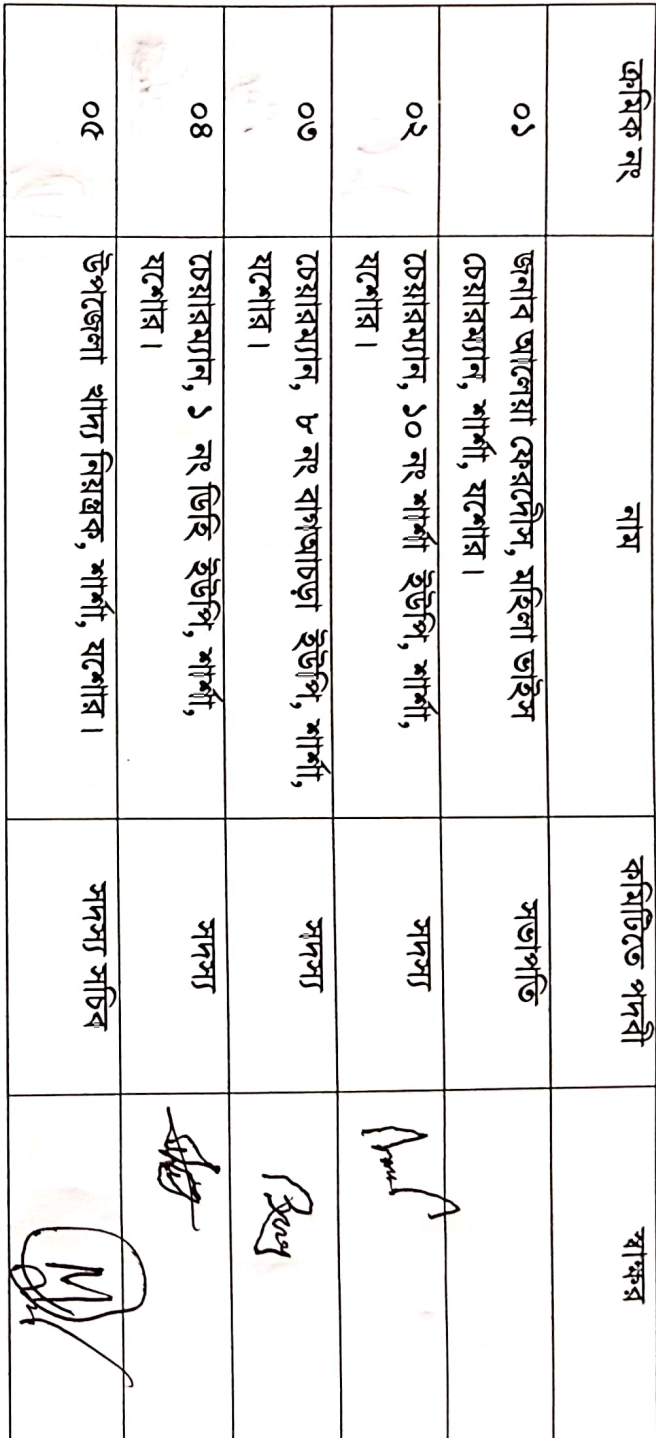 ক্রমিক নং	নাম	কমিটিতে পদবী	স্বাক্ষর
০১	জনাব আলেয়া ফেরদৌস, মহিলা ভাইস	সভাপতি
চেয়ারম্যান, শার্শা, যশোর।
০২	চেয়ারম্যান, ১০ নং শার্শা ইউপি, শার্শা,	সদস্য
যশোর।
০৩	চেয়ারম্যান, ৮ নং বাগআচড়া ইউপি, শার্শা,	সদস্য
যশোর।
০৪	চেয়ারম্যান, ১ নং ডিহি ইউপি, শার্শা,	সদস্য
যশোর।
০৫	উপজেলা খাদ্য নিয়ন্ত্রক, শার্শা, যশোর।	সদস্য সচিব